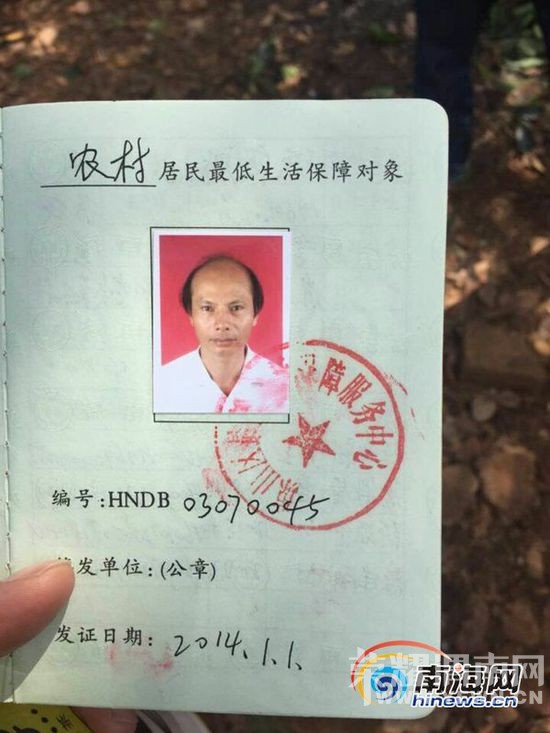 农村居民最低生活保障对象
障服务中心
编号:HNDB 03070045
发单位:(公章)
发证日期: 2014.1.1.
南海网
hinews.cn